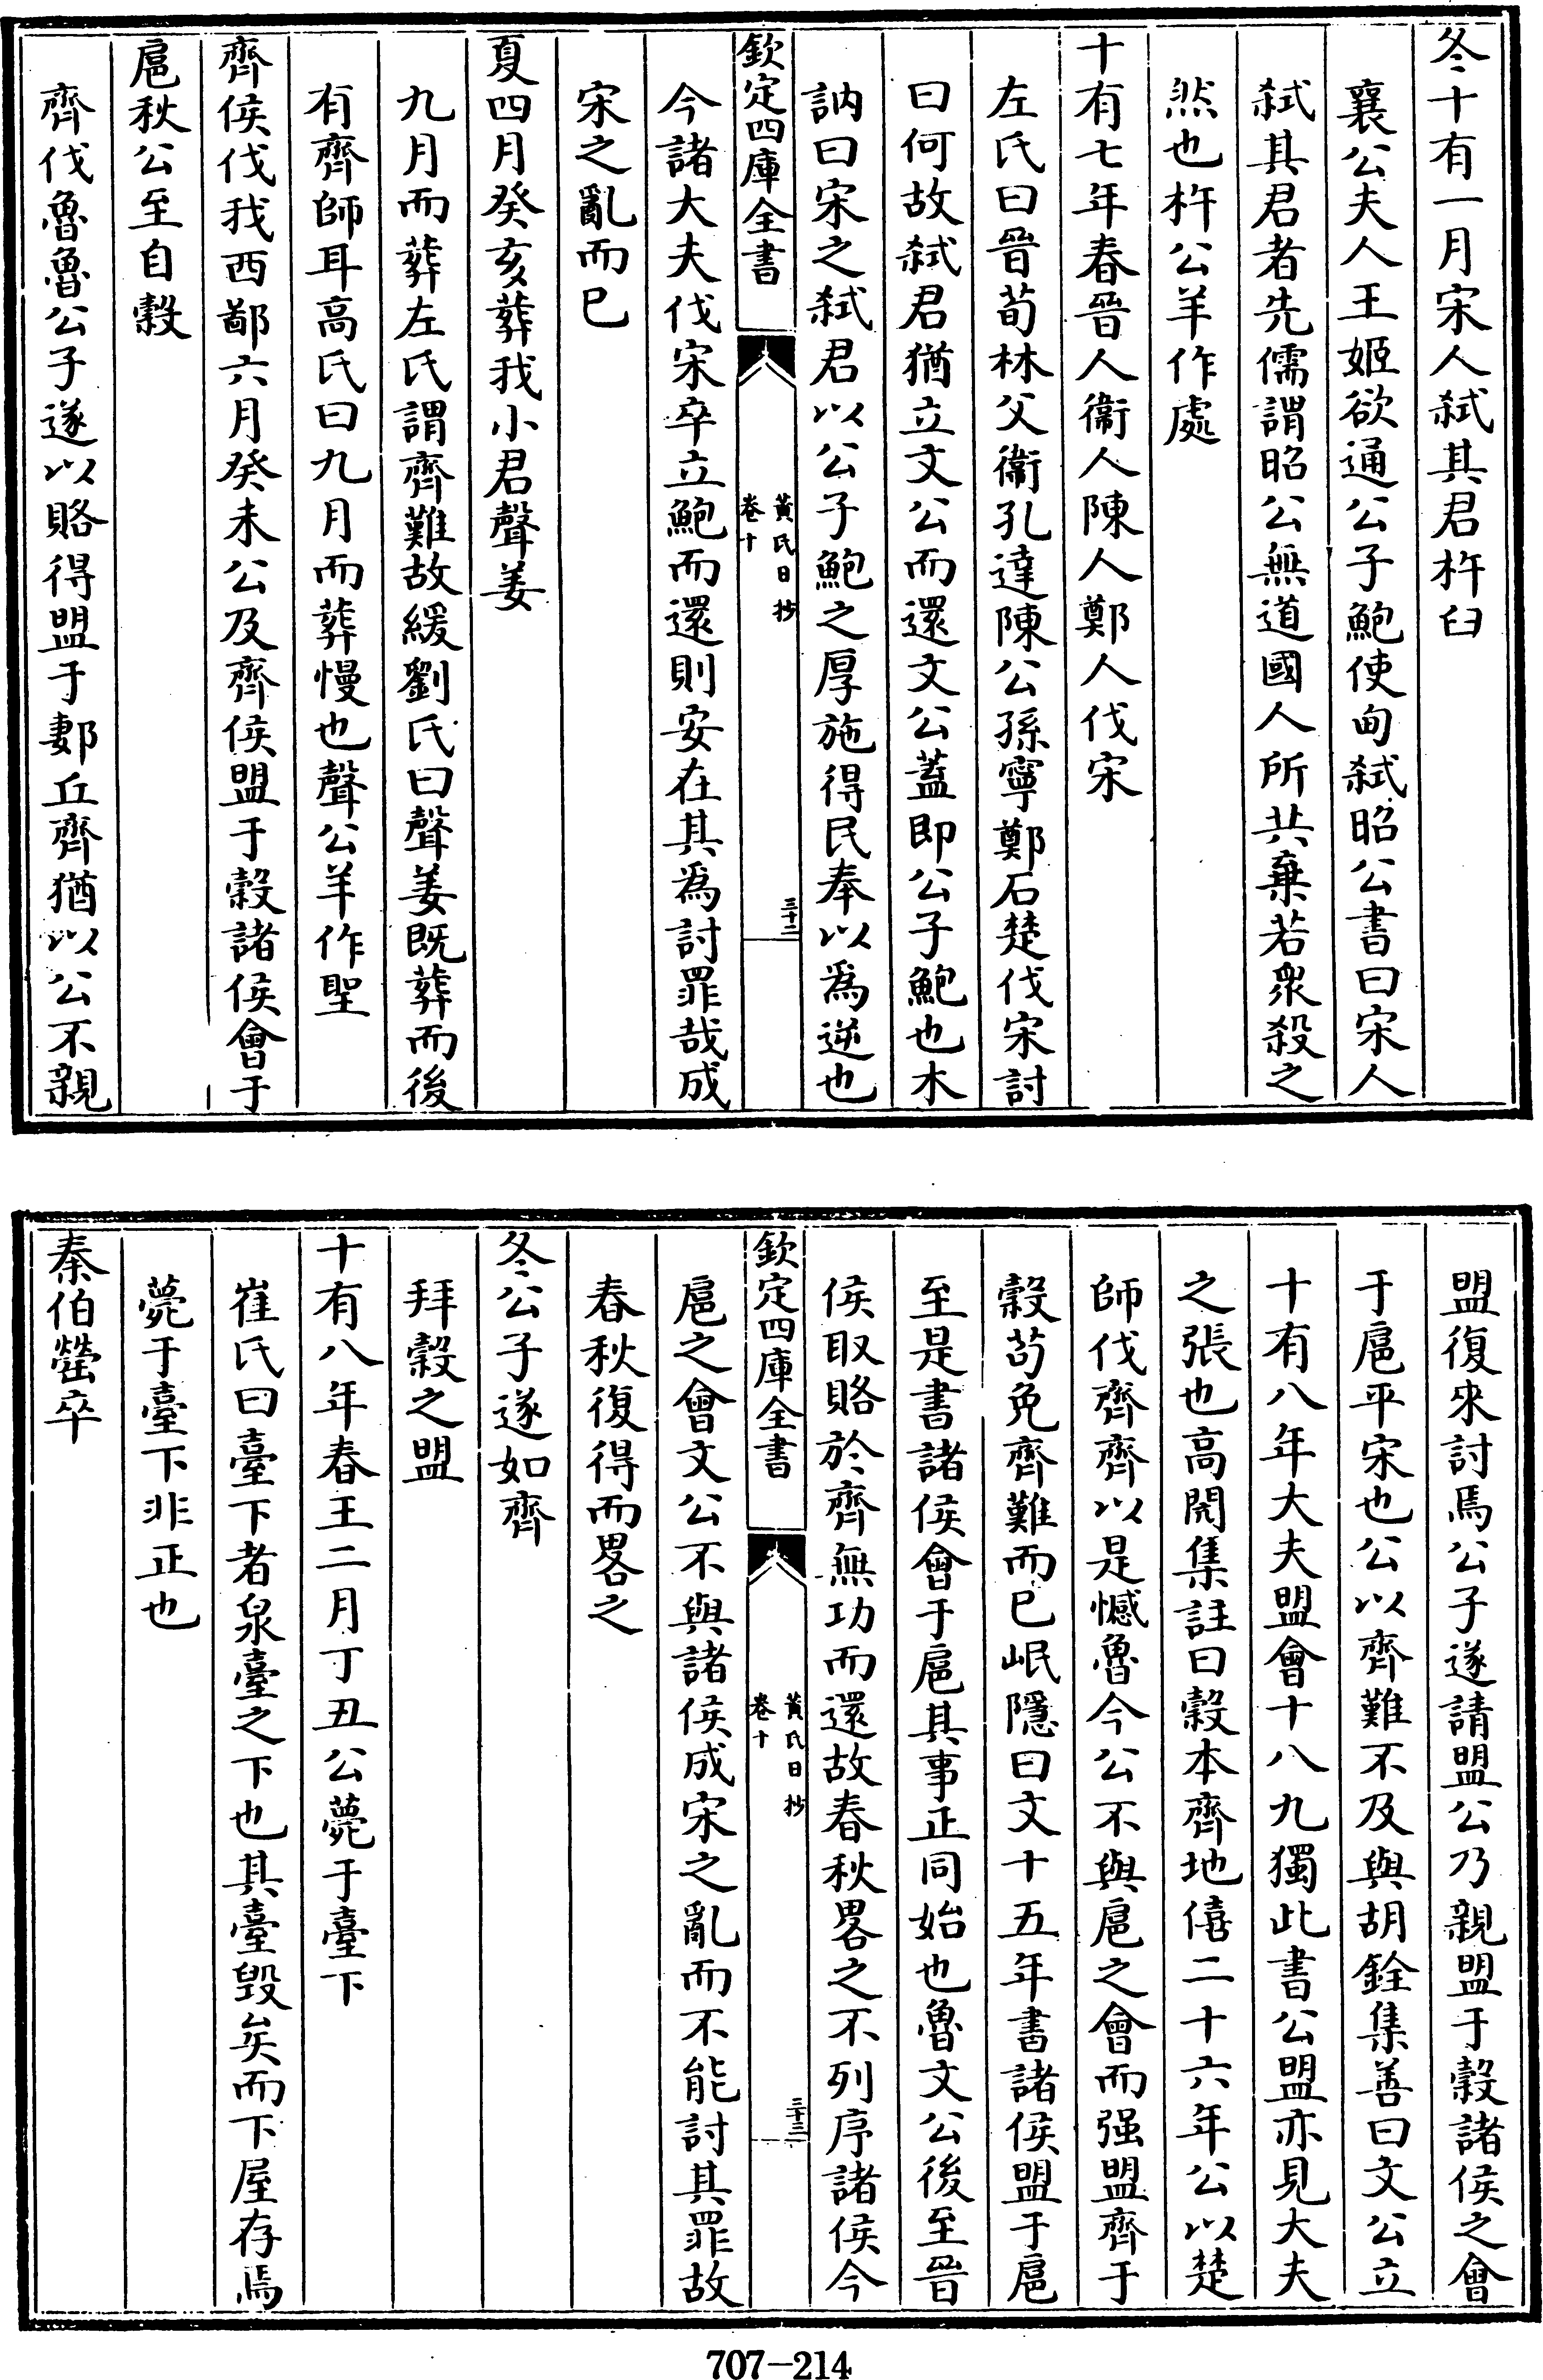 冬十有一月宋人弑其君杵臼
襄公夫人王姬欲通公子鮑使甸弑昭公書曰宋人
弑其君者先儒謂昭公無道國人所共棄若衆殺之
然也杵公羊作處
十有七年春晉人衞人陳人鄭人伐宋
左氏曰晉荀林父衞孔達陳公孫寧鄭石楚伐宋討
曰何故弑君猶立文公而還文公蓋即公子鮑也木
訥曰宋之弑君以公子鮑之厚施得民奉以爲逆也
欽定四庫全書
黃氏日抄
卷十
三十二
今諸大夫伐宋卒立鮑而還則安在其爲討罪哉成
宋之亂而已
夏四月癸亥葬我小君聲姜
九月而葬左氏謂齊難故緩劉氏曰聲姜既葬而後
有齊師耳高氏曰九月而葬慢也聲公羊作聖
齊侯伐我西鄙六月癸未公及齊侯盟于穀諸侯會于
扈秋公至自穀
齊伐魯魯公子遂以賂得盟于郪丘齊猶以公不親
盟復來討焉公子遂請盟公乃親盟于穀諸侯之會
于扈平宋也公以齊難不及與胡銓集善曰文公立
十有八年大夫盟會十八九獨此書公盟亦見大夫
之張也高閌集註曰穀本齊地僖二十六年公以楚
師伐齊齊以是憾魯今公不與扈之會而强盟齊于
穀苟免齊難而已岷隱曰文十五年書諸侯盟于扈
至是書諸侯會于扈其事正同始也魯文公後至晉
侯取賂於齊無功而還故春秋畧之不列序諸侯今
欽定四庫全書
黃氏日抄
卷十
三十三
扈之會文公不與諸侯成宋之亂而不能討其罪故
春秋復得而畧之
冬公子遂如齊
拜穀之盟
十有八年春王二月丁丑公薨于臺下
崔氏曰臺下者泉臺之下也其臺毀矣而下屋存焉
薨于臺下非正也
秦伯罃卒
707-214